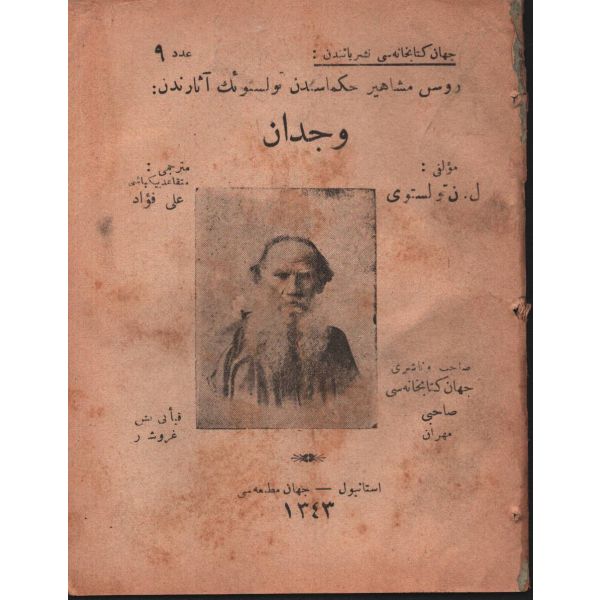 جهان كتابخانه‌سی نشریاتندن : عدد ۹
روس مشاهیر حكماسندن تولستوینك آثارندن:
وجدان
مؤلفی :
ل. ن تولستوی
مترجمی :
متقاعد بیكباشی
علی فؤاد
صاحب و ناشری
جهان كتابخانه‌سی
صاحبی
مهران
فیأتی بش
غروشدر
استانبول — جهان مطبعه‌سی
۱۳۴۳